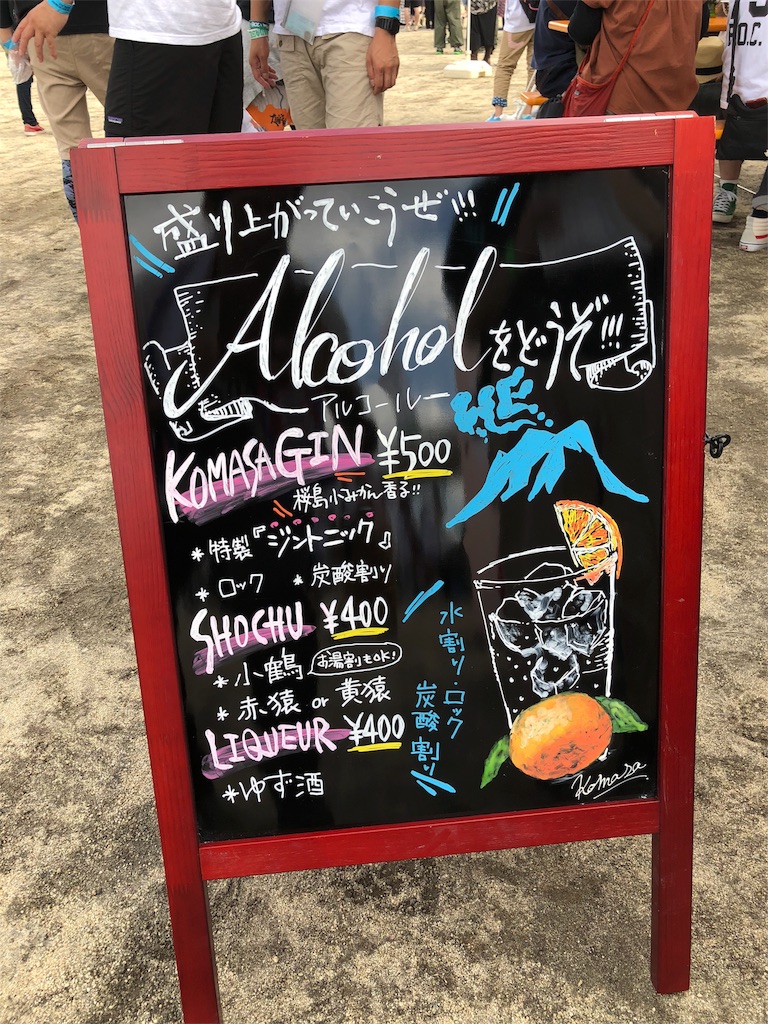 盛り上がっていこうぜ!!!
Alcoholをどうぞ!!!
アルコール
KOMASAGIN ¥500
桜島小みかん香る!!
*特製『ジントニック』
*ロック *炭酸割り
SHOCHU ¥400
*小鶴 お湯割もOK!
*赤猿 or 黄猿
水割り・ロック
炭酸割り
LIQUEUR ¥400
*ゆず酒
Komasa
R.O.C.